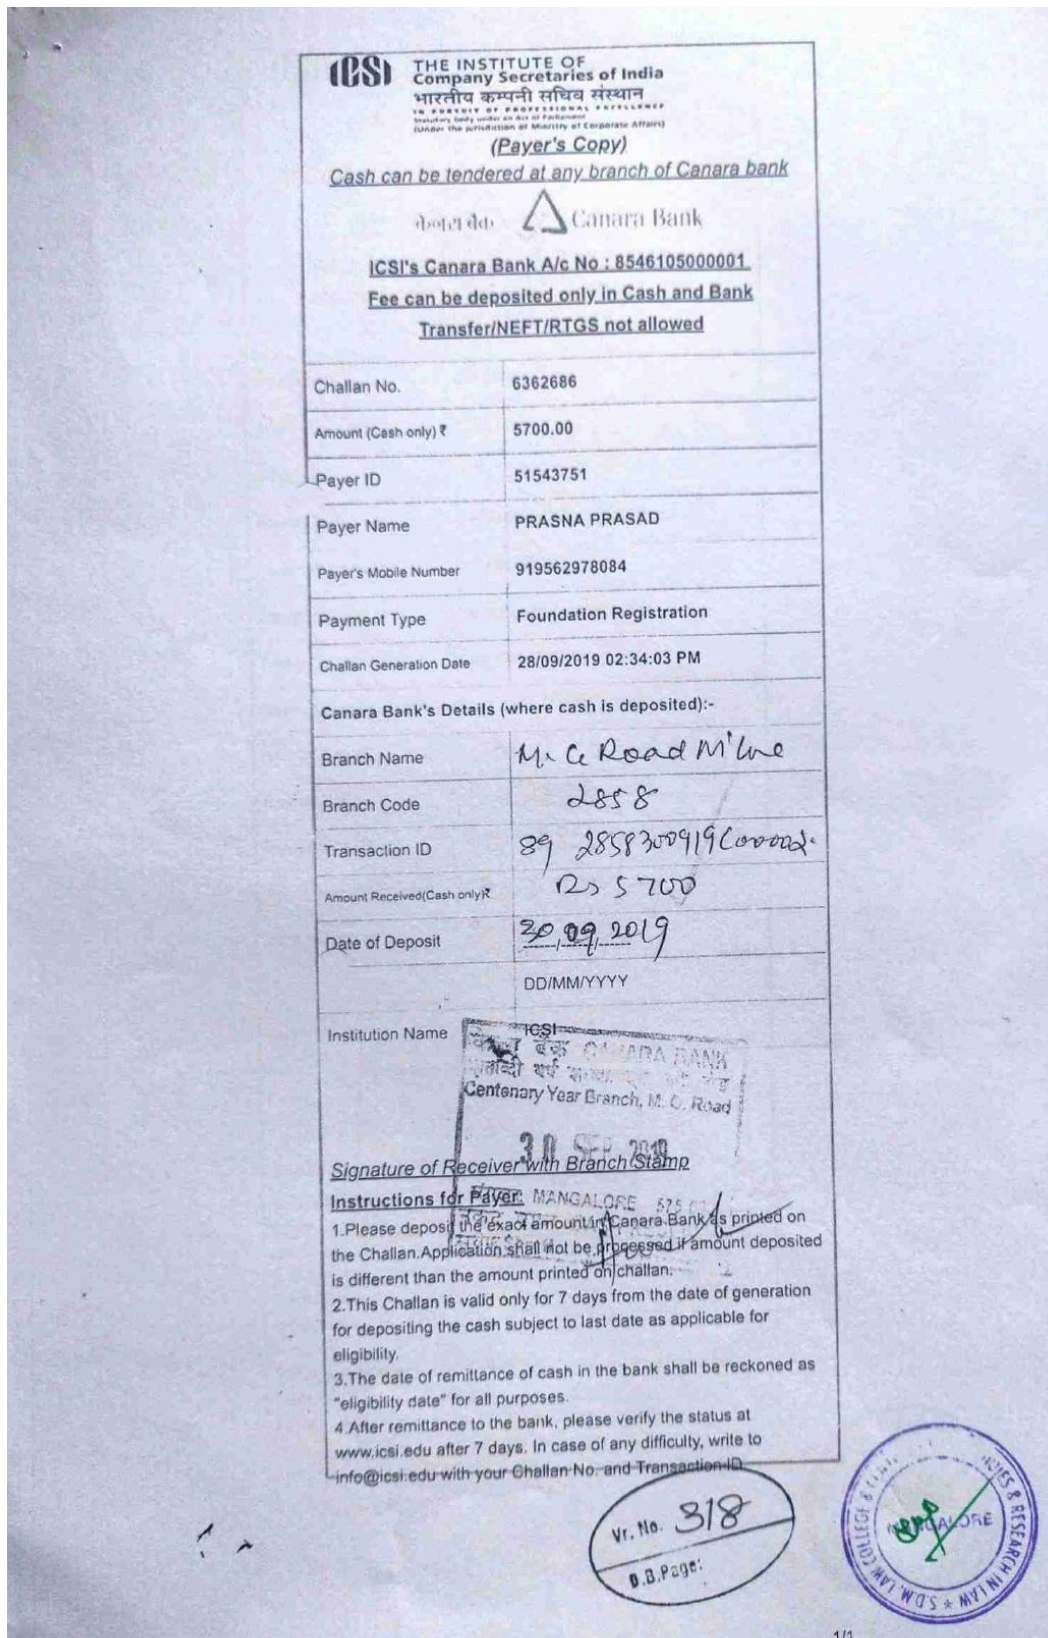 ICSI THE INSTITUTE OF
Company Secretaries of India
भारतीय कम्पनी सचिव संस्थान
IN PURSUIT OF PROFESSIONAL EXCELLENCE
Statutory body under an Act of Parliament
(Under the jurisdiction of Ministry of Corporate Affairs)
(Payer's Copy)
Cash can be tendered at any branch of Canara bank
केनरा बैंक Canara Bank
ICSI's Canara Bank A/c No : 8546105000001
Fee can be deposited only in Cash and Bank
Transfer/NEFT/RTGS not allowed
Challan No. 6362686
Amount (Cash only) ₹ 5700.00
Payer ID 51543751
Payer Name PRASNA PRASAD
Payer's Mobile Number 919562978084
Payment Type Foundation Registration
Challan Generation Date 28/09/2019 02:34:03 PM
Canara Bank's Details (where cash is deposited):-
Branch Name M. G Road M'lore
Branch Code 2858
Transaction ID 89 2858300919C00002
Amount Received(Cash only)₹ Rs 5700
Date of Deposit 30,09,2019
DD/MM/YYYY
Institution Name ICSI
बैंक CANARA BANK
Centenary Year Branch, M. G. Road
30 SEP 2019
Signature of Receiver with Branch Stamp
Instructions for Payer: MANGALORE
1.Please deposit the exact amount in Canara Bank as printed on
the Challan.Application shall not be processed if amount deposited
is different than the amount printed on challan.
2.This Challan is valid only for 7 days from the date of generation
for depositing the cash subject to last date as applicable for
eligibility.
3.The date of remittance of cash in the bank shall be reckoned as
"eligibility date" for all purposes.
4.After remittance to the bank, please verify the status at
www.icsi.edu after 7 days. In case of any difficulty, write to
info@icsi.edu with your Challan No. and Transaction ID
Vr. No. 318
D.B.Page:
S.D.M. LAW COLLEGE & RESEARCH IN LAW *
MANGALORE
1/1